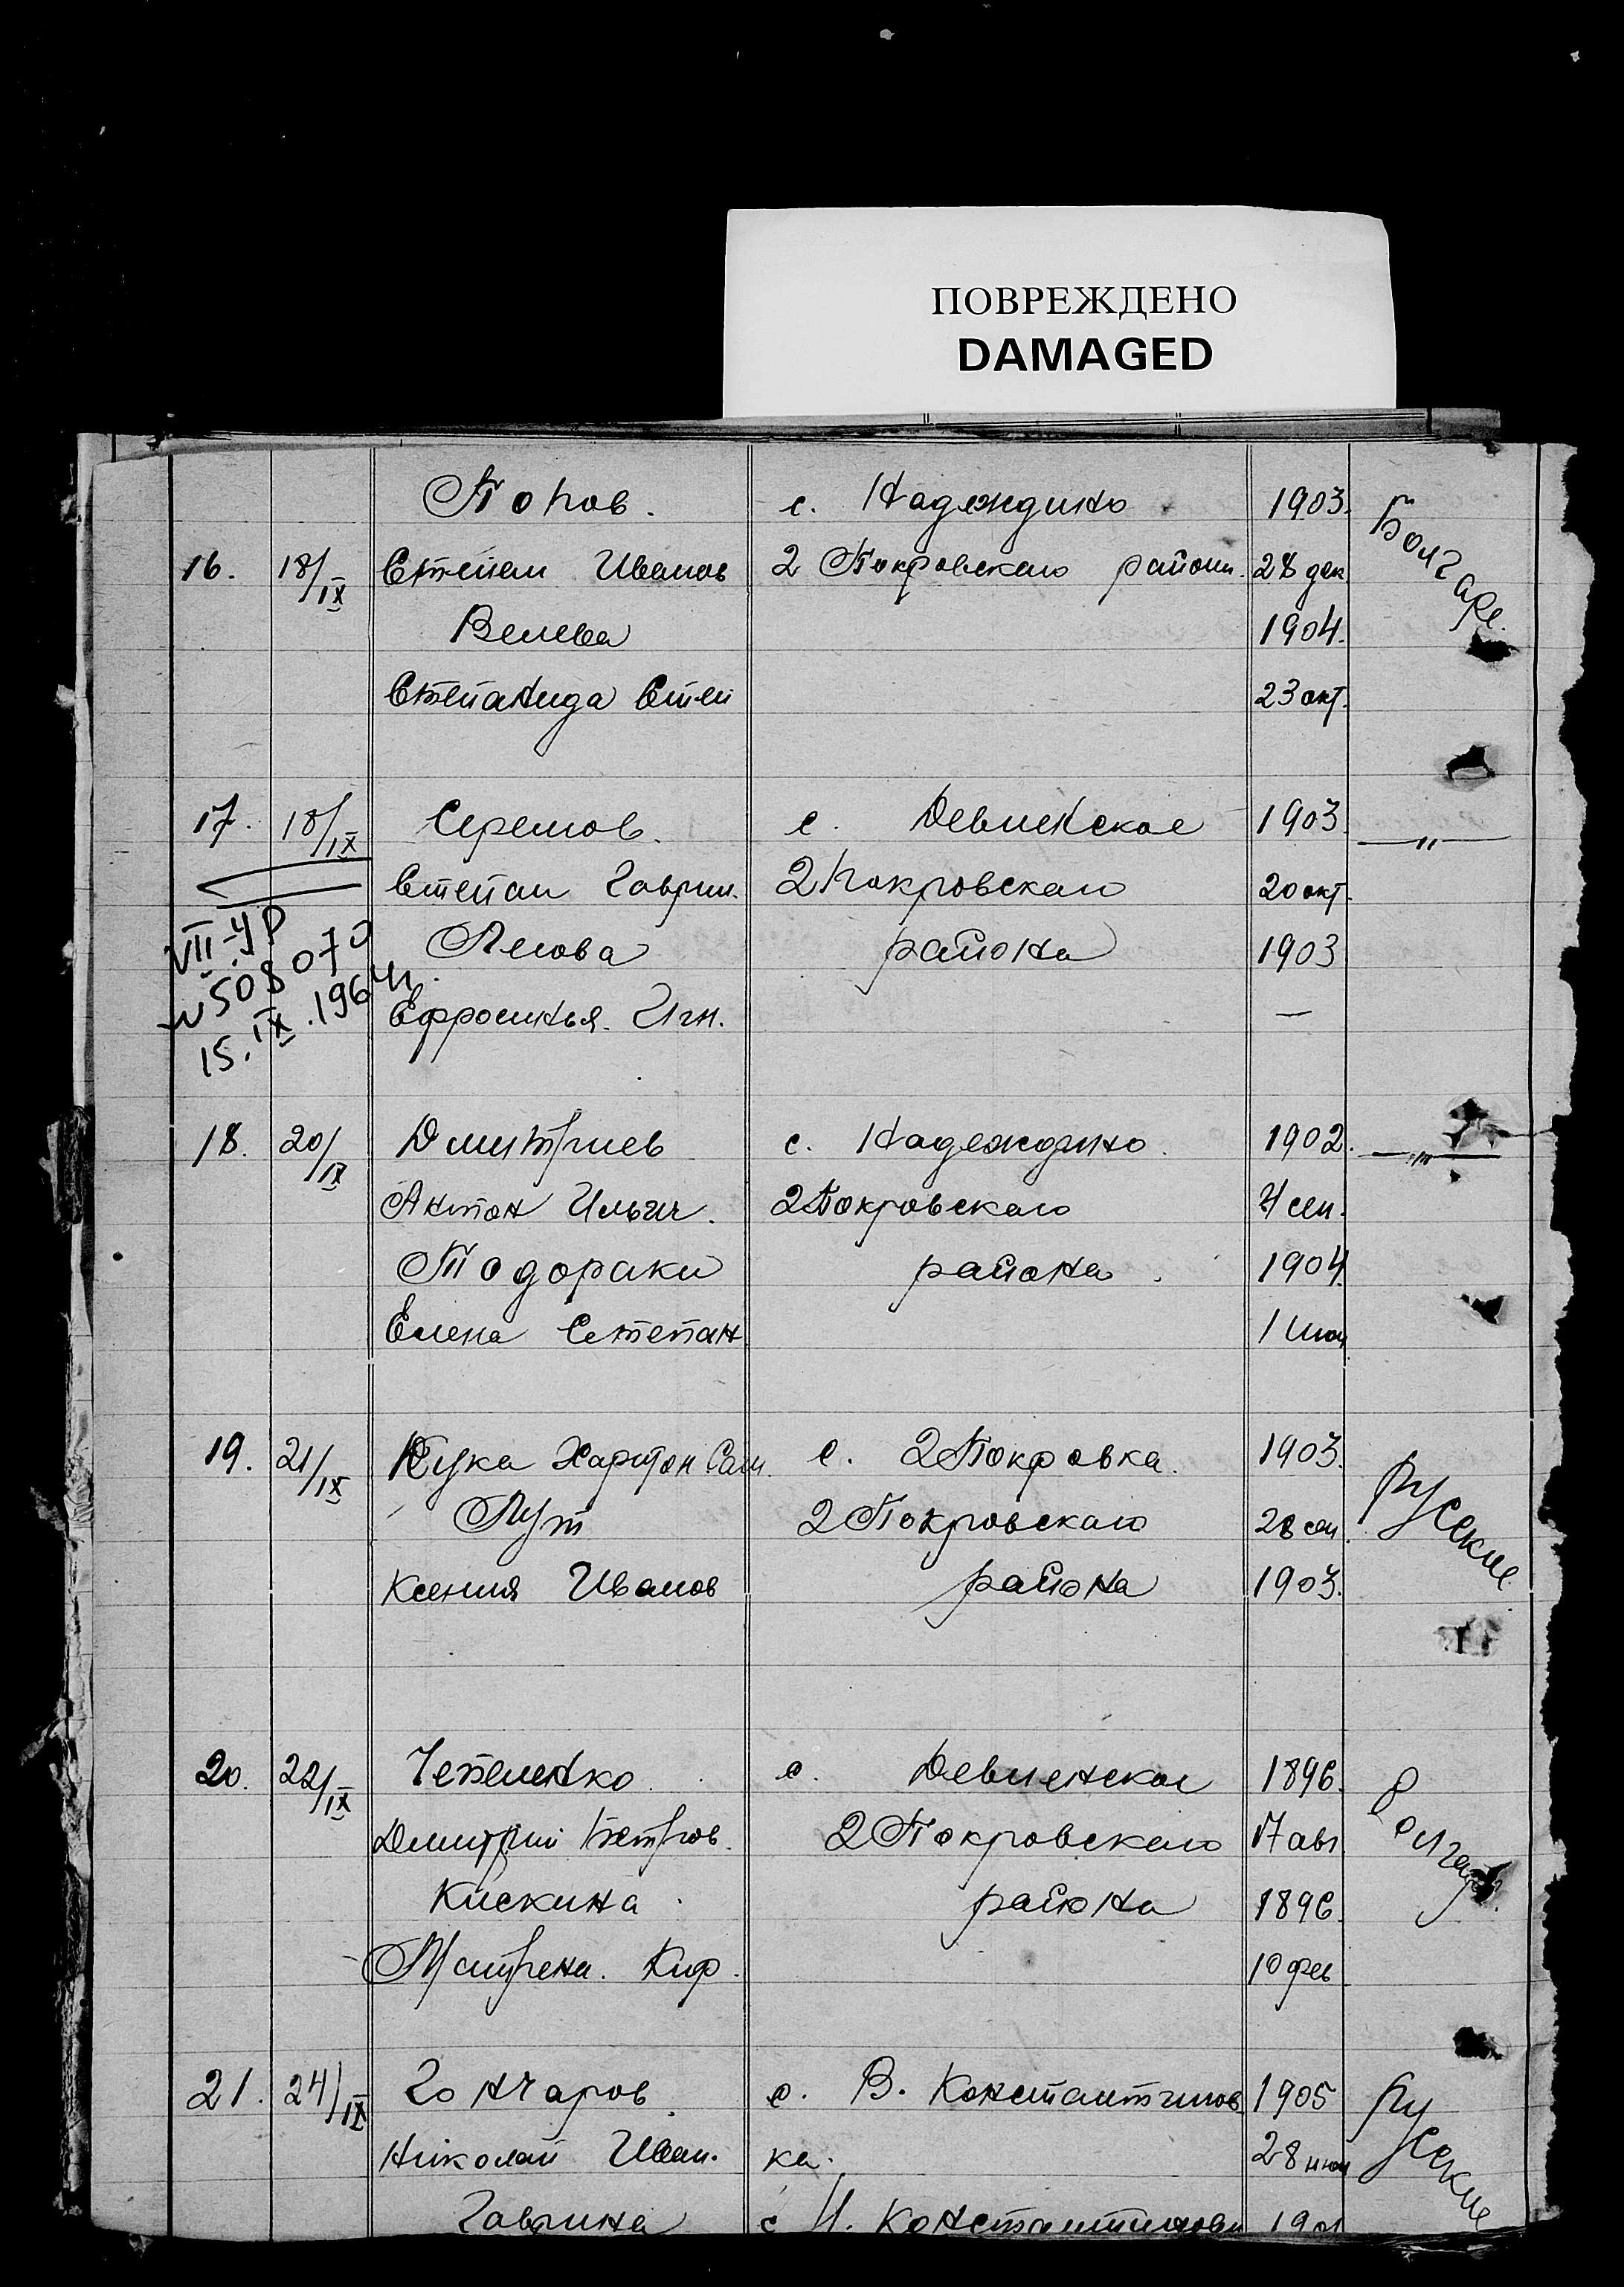 ПОВРЕЖДЕНО
DAMAGED
Попов. с. Надеждино 1903. Болгаре.
16. 18/IX Степан Иванов 2 Покровского района. 28 дек.
Велева 1904.
Степанида Степ 23 окт.
17. 18/IX с. Девненское 1903 —"—
Степан Гаврил. 2 Покровского 20 окт.
района 1903
Ефросинья. Игн. —
VII-УР
15.IX.1964г.
18. 20/IX Дмитриев с. Надеждино. 1902. —"—
Антон Ильич. 2 Покровского 4 сен.
Тодораки района. 1904.
Елена Степан. 1
19. 21/IX Харитон Сам. с. 2 Покровка. 1903. Русские.
2 Покровского 28 сен.
Ксения Иванов района 1903.
20. 22/IX Чепеленко. с. Девненское 1896. Болгары.
Дмитрий Петров. 2 Покровского 17 авг
Кискина района 1896.
Матрена. Кир. 10 фев
21. 24/IX Гончаров. с. В. Константинов 1905 Русские
Николай Иван. ка. 28
Гаврина с Н. Константиновк